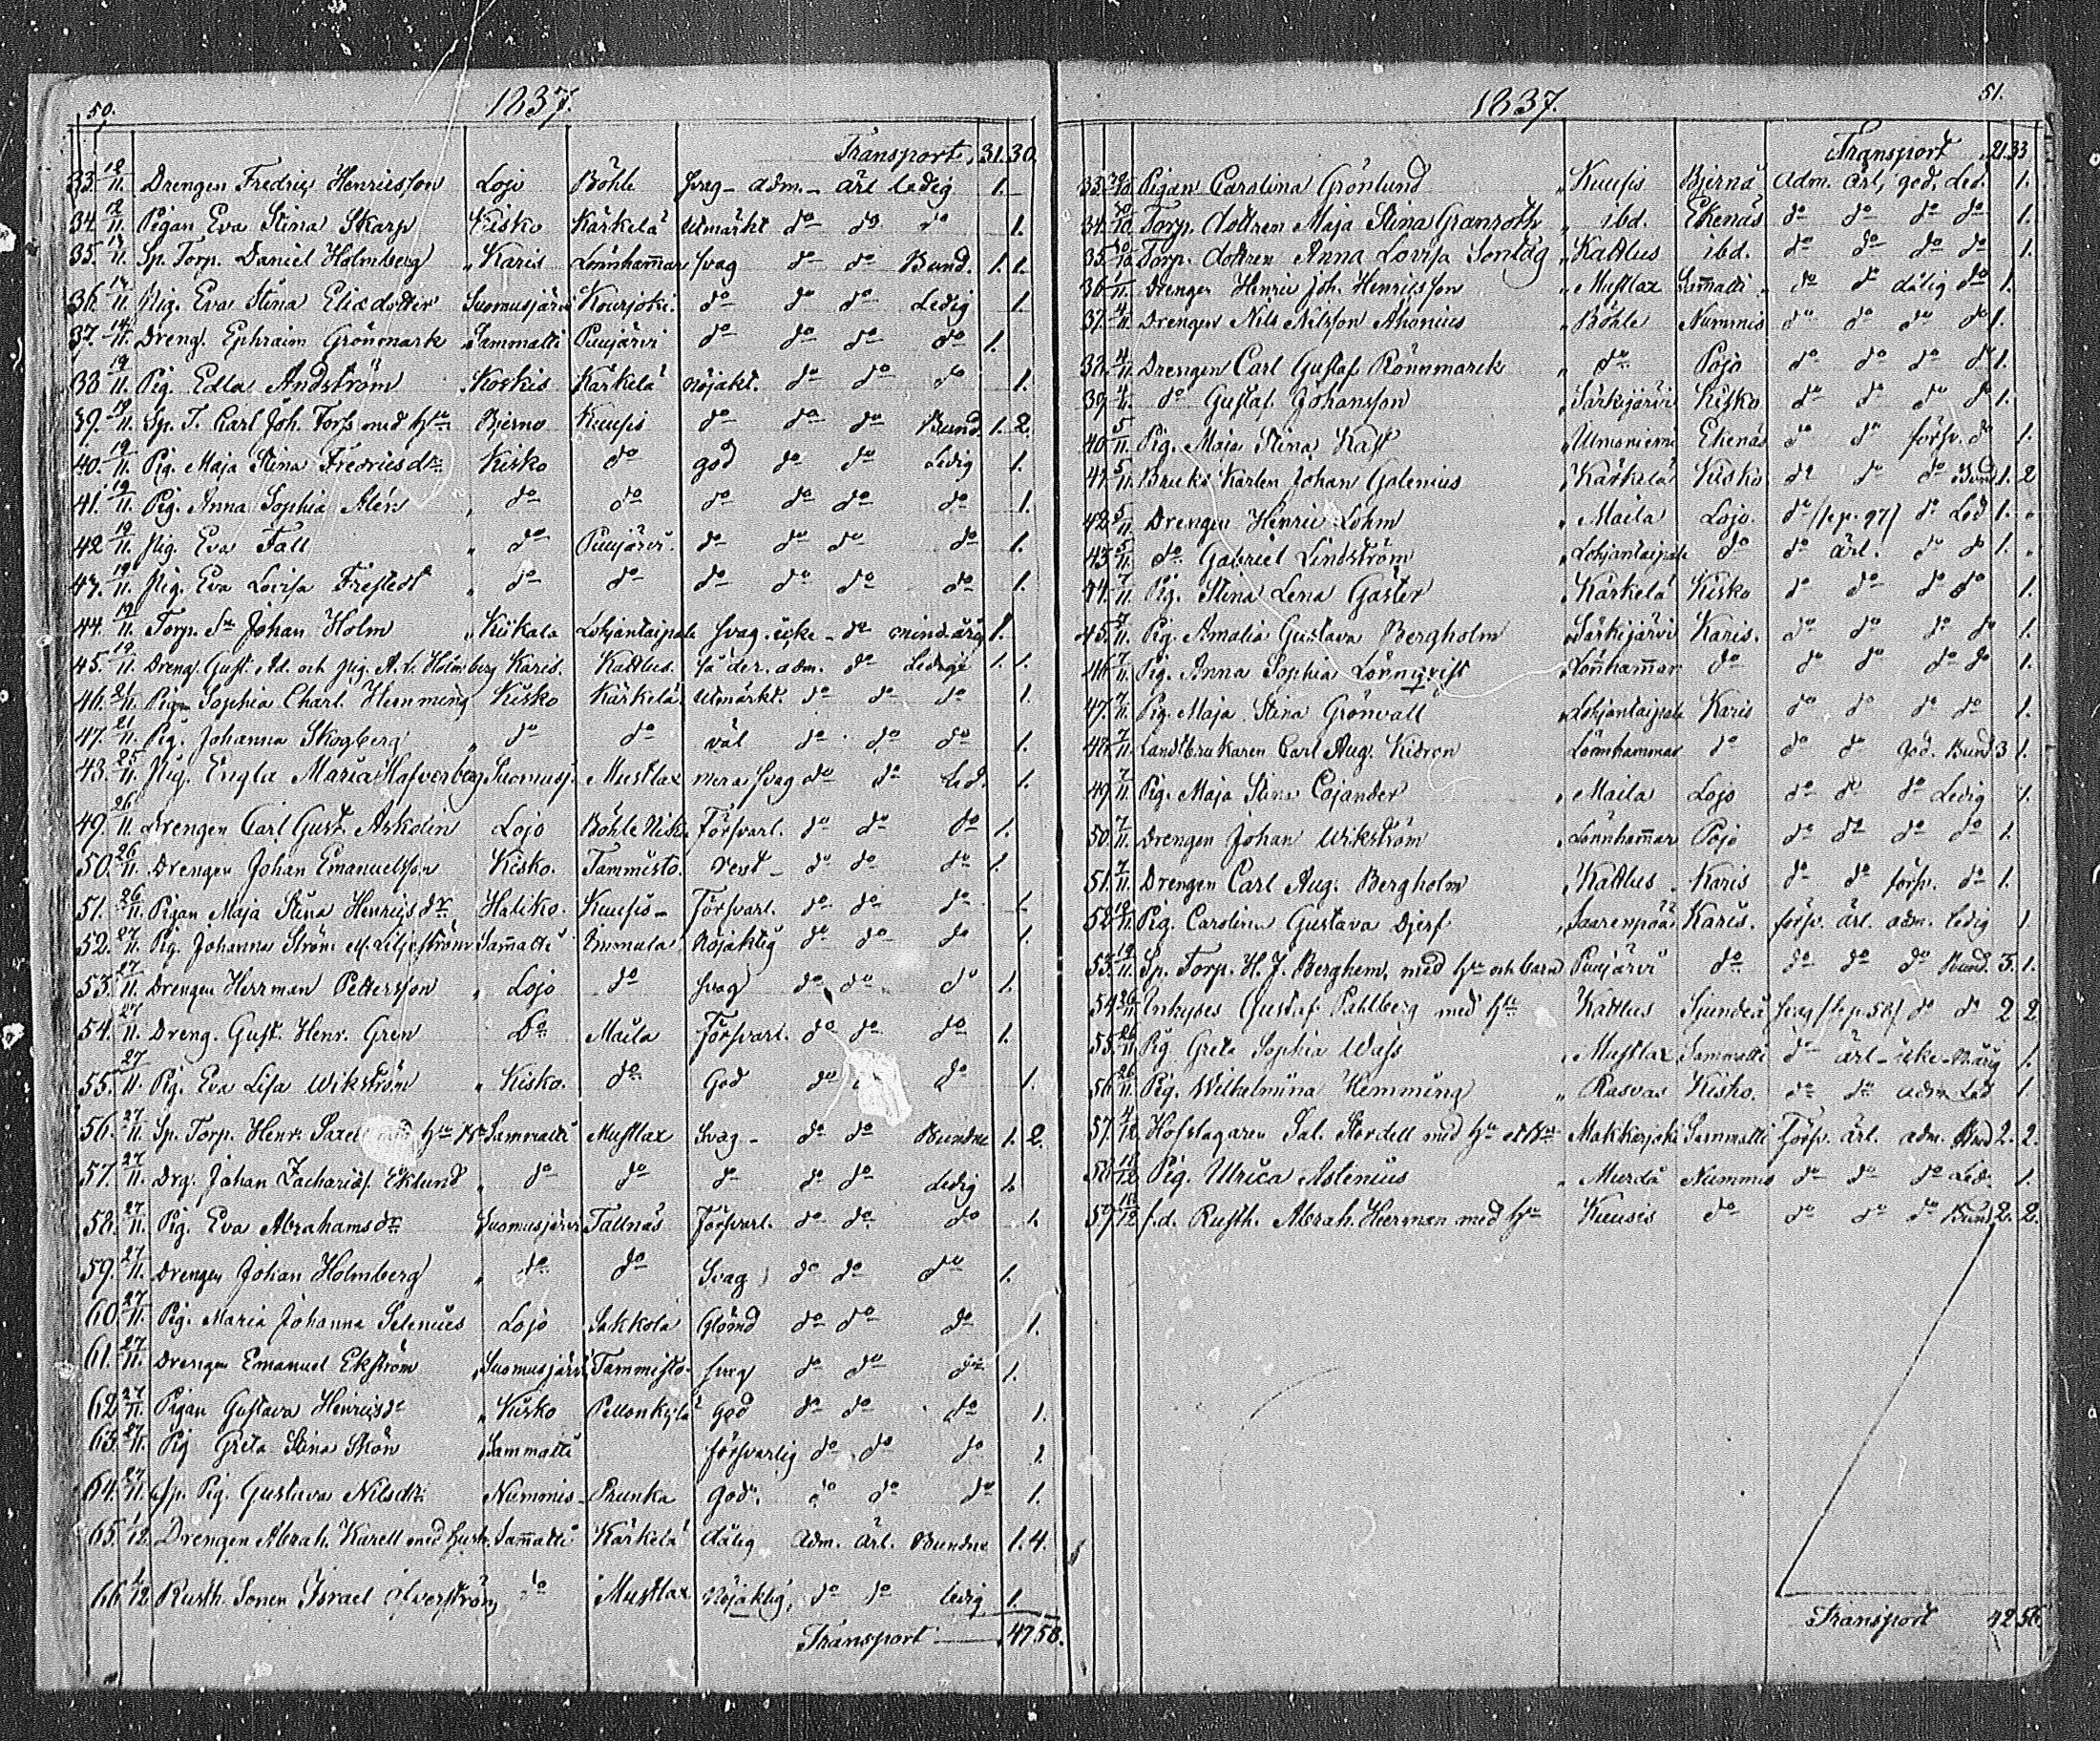 50.
1837.
Transport, 31. 30.
33. 12/11. Drengen Fredric Henricsson Lojo Böhle svag - adm. - ärl ledig 1.
34. 12/11. Pigan Eva Stina Skarp Kisko Kärkelä Utmärkt do do do 1.
35. 14/11. Sp. Torp. Daniel Holmberg Karis Lönnhammar svag do do Bund. 1. 1.
36. 14/11. Pig. Eva Stina Eliædotter Suomusjärvi Kourjoki do do do Ledig 1.
37. 14/11. Dreng. Ephraim Grönmark Sammatti Puujärvi do do do do 1.
38 19/11. Pig. Edla Andström Koskis Kärkelä Nöjakt. do do do 1.
39. 19/11. Sp. T. Carl Joh. Fors med hu Bjerno Kuusis do do do Bund. 1. 2.
40. 19/11. Pig. Maja Stina Fredricsdr Kisko do god do do Ledig 1.
41. 19/11. Pig. Anna Sophia Alén do do do do do do 1.
42 19/11. Pig. Eva Fall do Puujärvi do do do do 1.
43. 19/11. Pig. Eva Lovisa Frestedt do do do do do do 1.
44. 19/11. Torp. Sn Johan Holm Kiikala Lohjantaipale svag. icke - do mind. årig 1.
45. 19/11. Dreng. Gust. Ad. och pig. A. L. Holmberg Karis. Kattlus. do Ledige 1. 1.
46. 21/11. Pigan Sophia Charl. Hemming Kisko Kärkelä Utmärkt. do do do 1.
47. 21/11. Pig. Johanna Skogberg do do väl do do do 1.
48. 25/11. Pig. Engla Maria Hafverberg Suomusj. Mustlax mera svag do do Led. 1.
49. 26/11. Drengen Carl Gust. Askolin Lojo Böhle Försvarl. do do do 1.
50. 26/11. Drengen Johan Emanuelsson Kisko. Tammisto. do do do 1.
51. 26/11. Pigan Maja Stina Henricsdr Haliko. Kuusis - Försvarl. do do do 1
52. 27/11. Pig. Johanna Ström Liljeström Sammatti Immula Nöjaktig do do do 1.
53. 27/11. Drengen Herrman Pettersson Lojo do svag do do do 1.
54. 27/11. Dreng. Gust. Henr. Gren Do Maila Försvarl. do do do 1.
55. 27/11. Pig. Eva Lisa Wikström Kisko. do God do do 1.
56. 27/11. Sp. Torp. Henr. hu Sammatti Mustlax Svag - do do Bundne 1. 2.
57. 27/11. Drg. Johan Zachariæs. Eklund do do do do do Ledig 1.
58. 27/11. Pig. Eva Abrahamsdr Suomusjärvi Tallnäs Försvarl. do do do 1.
59. 27/11. Drengen Johan Holmberg do do Svag do do do 1.
60 27/11. Pig. Maria Johanna Selenius Lojo Sakkola Glömd do do do 1.
61. 27/11. Drengen Emanuel Ekström Suomusjärvi Tammisto. svag do do do 1.
62 27/11. Pigan Gustava Henricsdr Kisko Pellonkylä God do do do 1.
63. 27/11. Pig Greta Stina Skön Sammatti försvarlig do do do 1
64. 27/11. Sp. Pig. Gustava Nilsdr. Nummis - Prunka God. do do do 1.
65. 1/12. Drengen Abrah. Karell med hustr. Sammatti Kärkelä dålig Adm. ärl. Bundne 1. 4.
66 1/12 Rusth. Sonen Israel Alverström do Mustlax Nöjaktig, do do ledig 1.
Transport 47. 58.
51.
1837.
Transport 21. 33
33. 30/10 Pigan Carolina Grönlund Kuusis Bjernå adm. ärl, god, Led. 1.
34. 30/10 Torp. dottren Maja Stina Granroth ibd. Ekenäs do do do do 1.
35. 30/10 Torp. dottren Anna Lovisa Sontag Kattlus ibd. do do do do 1.
36. 1/11. Drengen Henric Joh. Henricsson Mustlax Sammatti do do dålig do 1.
37. 4/11. Drengen Nils Nilsson Ahonius Böhle Nummis do do do do 1.
38 4/11. Drengen Carl Gustaf Rönnmarck do Pojo do do do do 1.
39 4/11. do Gustaf Johansson Särkijärvi Kisko do do do do 1.
40 5/11. Pig. Maja Stina Kass Ulmoniemi Ekenäs do do försv. do 1.
41. 5/11. Bruks Karlen Johan Golenius Kärkelä Kisko do do do Bund 1. 2
42. 5/11. Drengen Henric Lohm Maila Lojo. do do Led 1.
43. 5/11. do Gabriel Lindström Lohjantaipale do do ärl. do do 1.
44. 7/11. Pig. Stina Lena Gäster Kärkelä Kisko do do do do 1.
45. 7/11. Pig. Amalia Gustava Bergholm Särkijärvi Karis. do do do do 1.
46. 7/11. Pig. Anna Sophia Lönnqvist Lönnhammar do do do do do 1.
47. 7/11. Pig. Maja Stina Grönvall Lohjantaipale Karis do do do do 1.
48. 7/11. Landtbrukaren Carl Aug. Kidron Lönnhammar do do do god. Bund 3 1.
49. 7/11. Pig. Maja Stina Cajander Maila Lojo do do do Ledig 1.
50. 7/11. Drengen Johan Wikström Lönnhammar Pojo do do do do 1.
51. 7/11. Drengen Carl Aug. Bergholm Kattlus Karis do do försv. do 1.
52 12/11. Pig. Carolina Gustava Djerf Saarenpää Karis. försv. ärl. adm. ledig 1.
53. 12/11. Sp. Torp. H. J. Berghem, med hu och barn Puujärvi do do do do Bund. 3. 1.
54. 26/11 Inhyses Gustaf Pahlberg med hu Kattlus Sjundeå do do 2 2.
55. 26/11 Pig. Greta Sophia Wass Mustlax Sammatti do ärl - icke - 1.
56. 26/11. Pig. Wilhelmina Hemming Rasvas Kisko. do do adm. Led 1.
57. 4/12 Hofslagaren Sal. Stordell med hu Makkarjoki Sammatti Försv. ärl. adm. Bund 2. 2.
58 18/12 Pig. Ulrica Astenius Nummis do do do Led. 1.
59. 18/12 f.d. Rusth. Abrah. Herman med hu Kuusis do do do do Bund 2. 2.
Transport 42. 56.